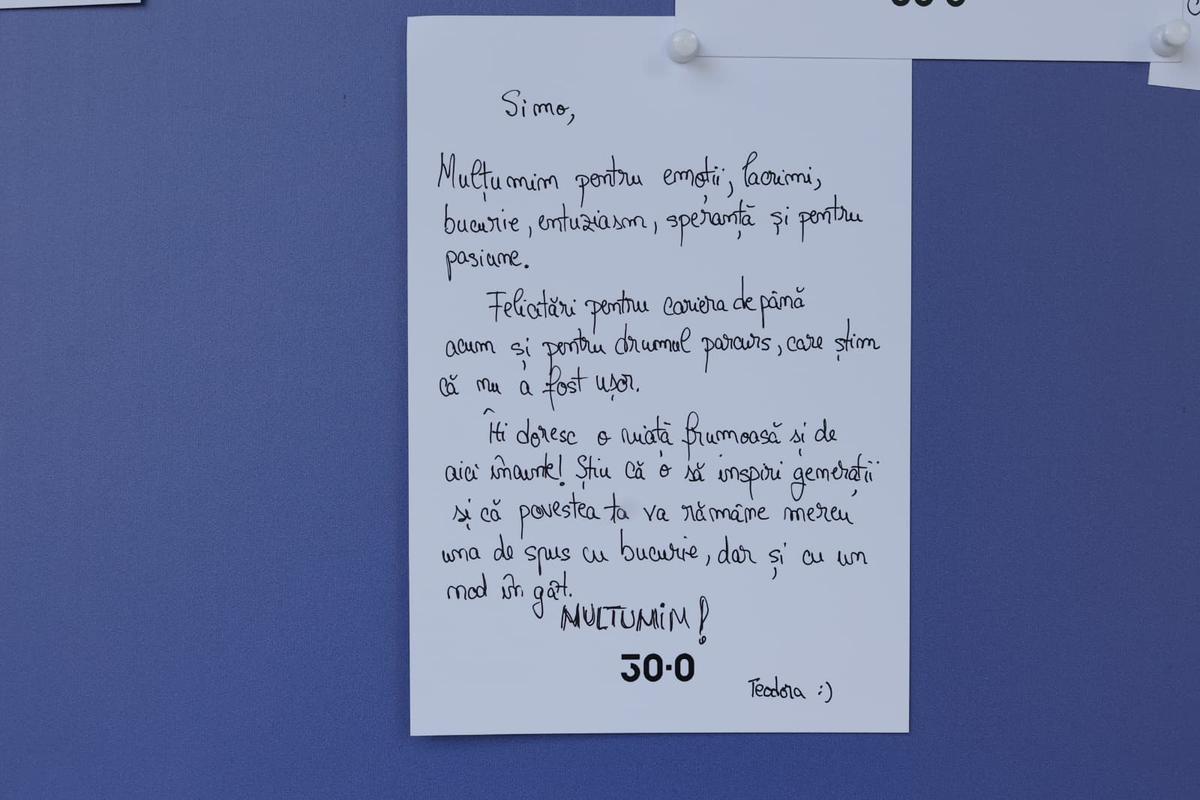 Simo,
Mulțumim pentru emoții, lacrimi,
bucurie, entuziasm, speranță și pentru
pasiune.
Felicitări pentru cariera de până
acum și pentru drumul parcurs, care știm
că nu a fost ușor.
Îți doresc o viață frumoasă și de
aici înainte! Știu că o să inspiri generații
și că povestea ta va rămâne mereu
una de spus cu bucurie, dar și cu un
nod în gât.
MULTUMIM!
30·0
Teodora :)